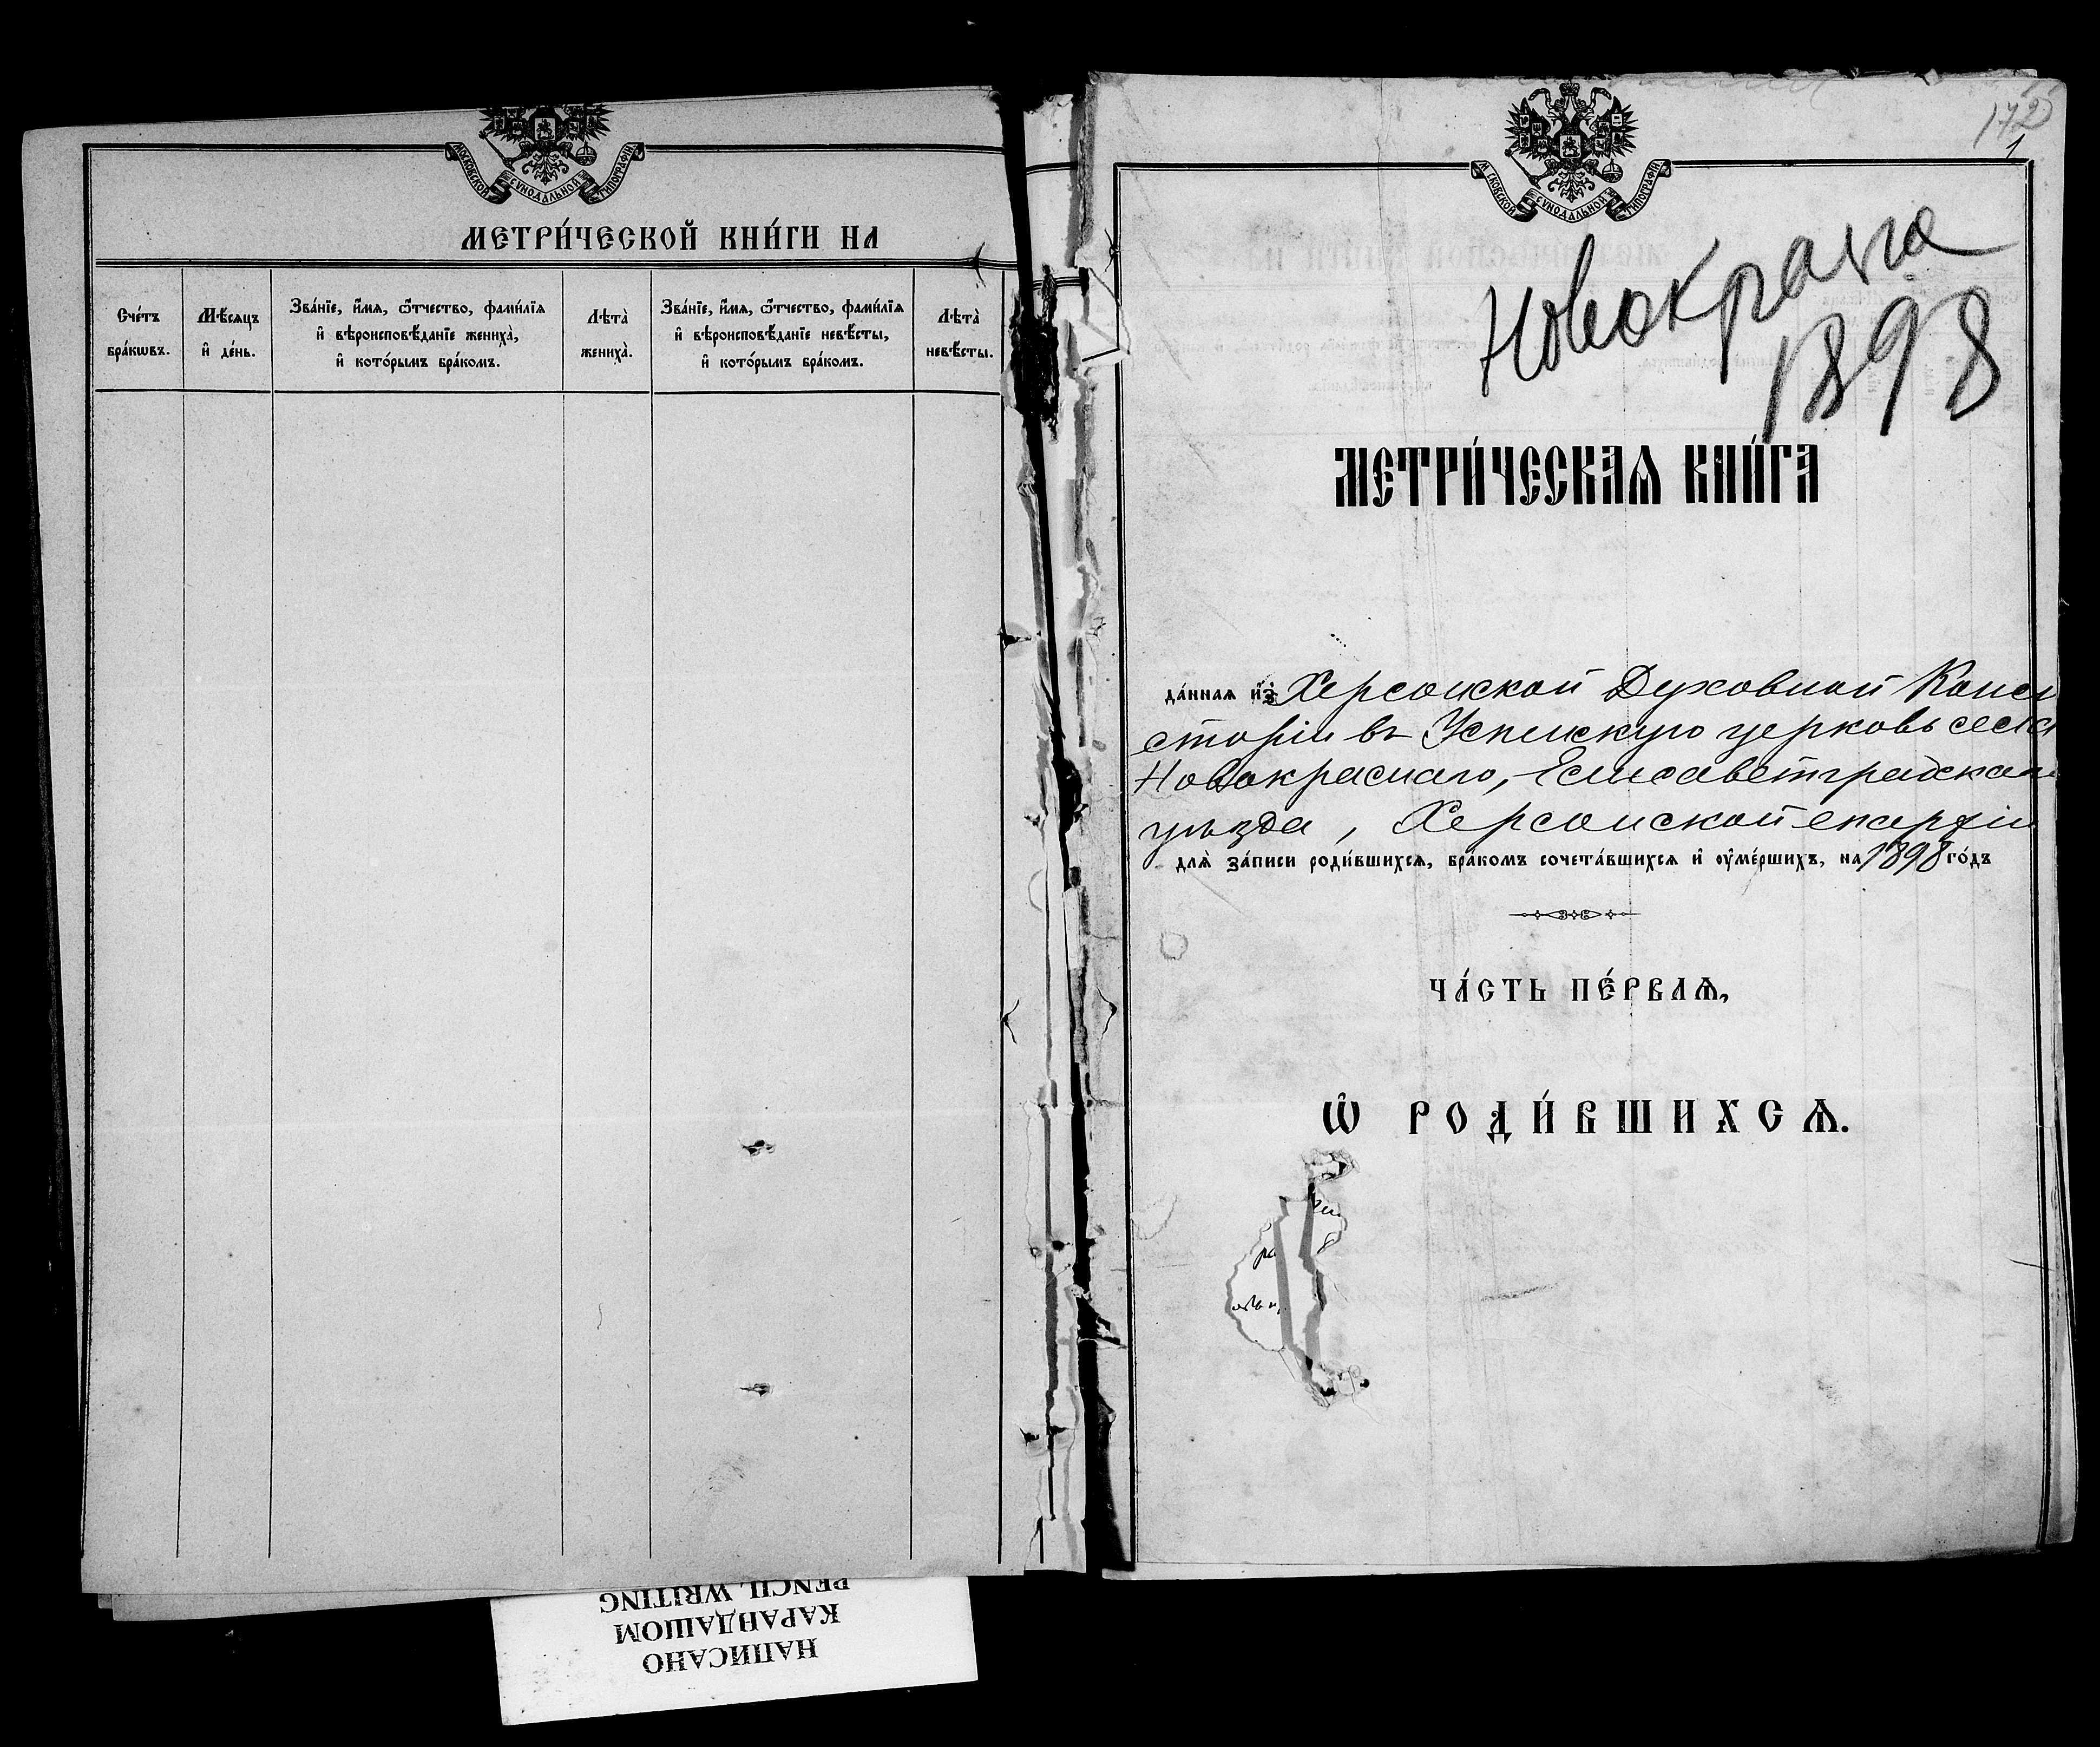 МОСКОВСКОЙ СѴНОДАЛЬНОЙ ТИПОГРАФІИ
МЕТРИ́ЧЕСКОЙ КНИ́ГИ НА
Сче́тъ бра́кѡвъ.
Мѣ́сяцъ и҆ де́нь.
Зва́нїе, и҆́мѧ, ѻ҆́тчество, фами́лїѧ
и҆ вѣроисповѣ́данїе жениха̀,
и҆ кото́рымъ бра́комъ.
Лѣта̀ жениха̀.
Зва́нїе, и҆́мѧ, ѻ҆́тчество, фами́лїѧ
и҆ вѣроисповѣ́данїе невѣ́сты,
и҆ кото́рымъ бра́комъ.
Лѣта̀ невѣ́сты.
НАПИСАНО
КАРАНДАШОМ
PENCIL WRITING
172
1
М СКОВСКОЙ СѴНОДАЛЬНОЙ ТИПОГРАФІИ
Новокрасна
1898
МЕТРИ́ЧЕСКАѦ КНИ́ГА
да́ннаѧ и҆з̾ Херсонской Духовной Конси
сторіи въ Успенскую церковь села
Новокраснаго, Елисаветградскаго
уѣзда, Херсонской епархіи
длѧ̀ за́писи роди́вшихсѧ, бра́комъ сочета́вшихсѧ и҆ ᲂу҆ме́ршихъ, на 1898 го́дъ
ЧА́СТЬ ПЕ́РВАѦ,
Ѡ҆ РОДИ́ВШИХСѦ.